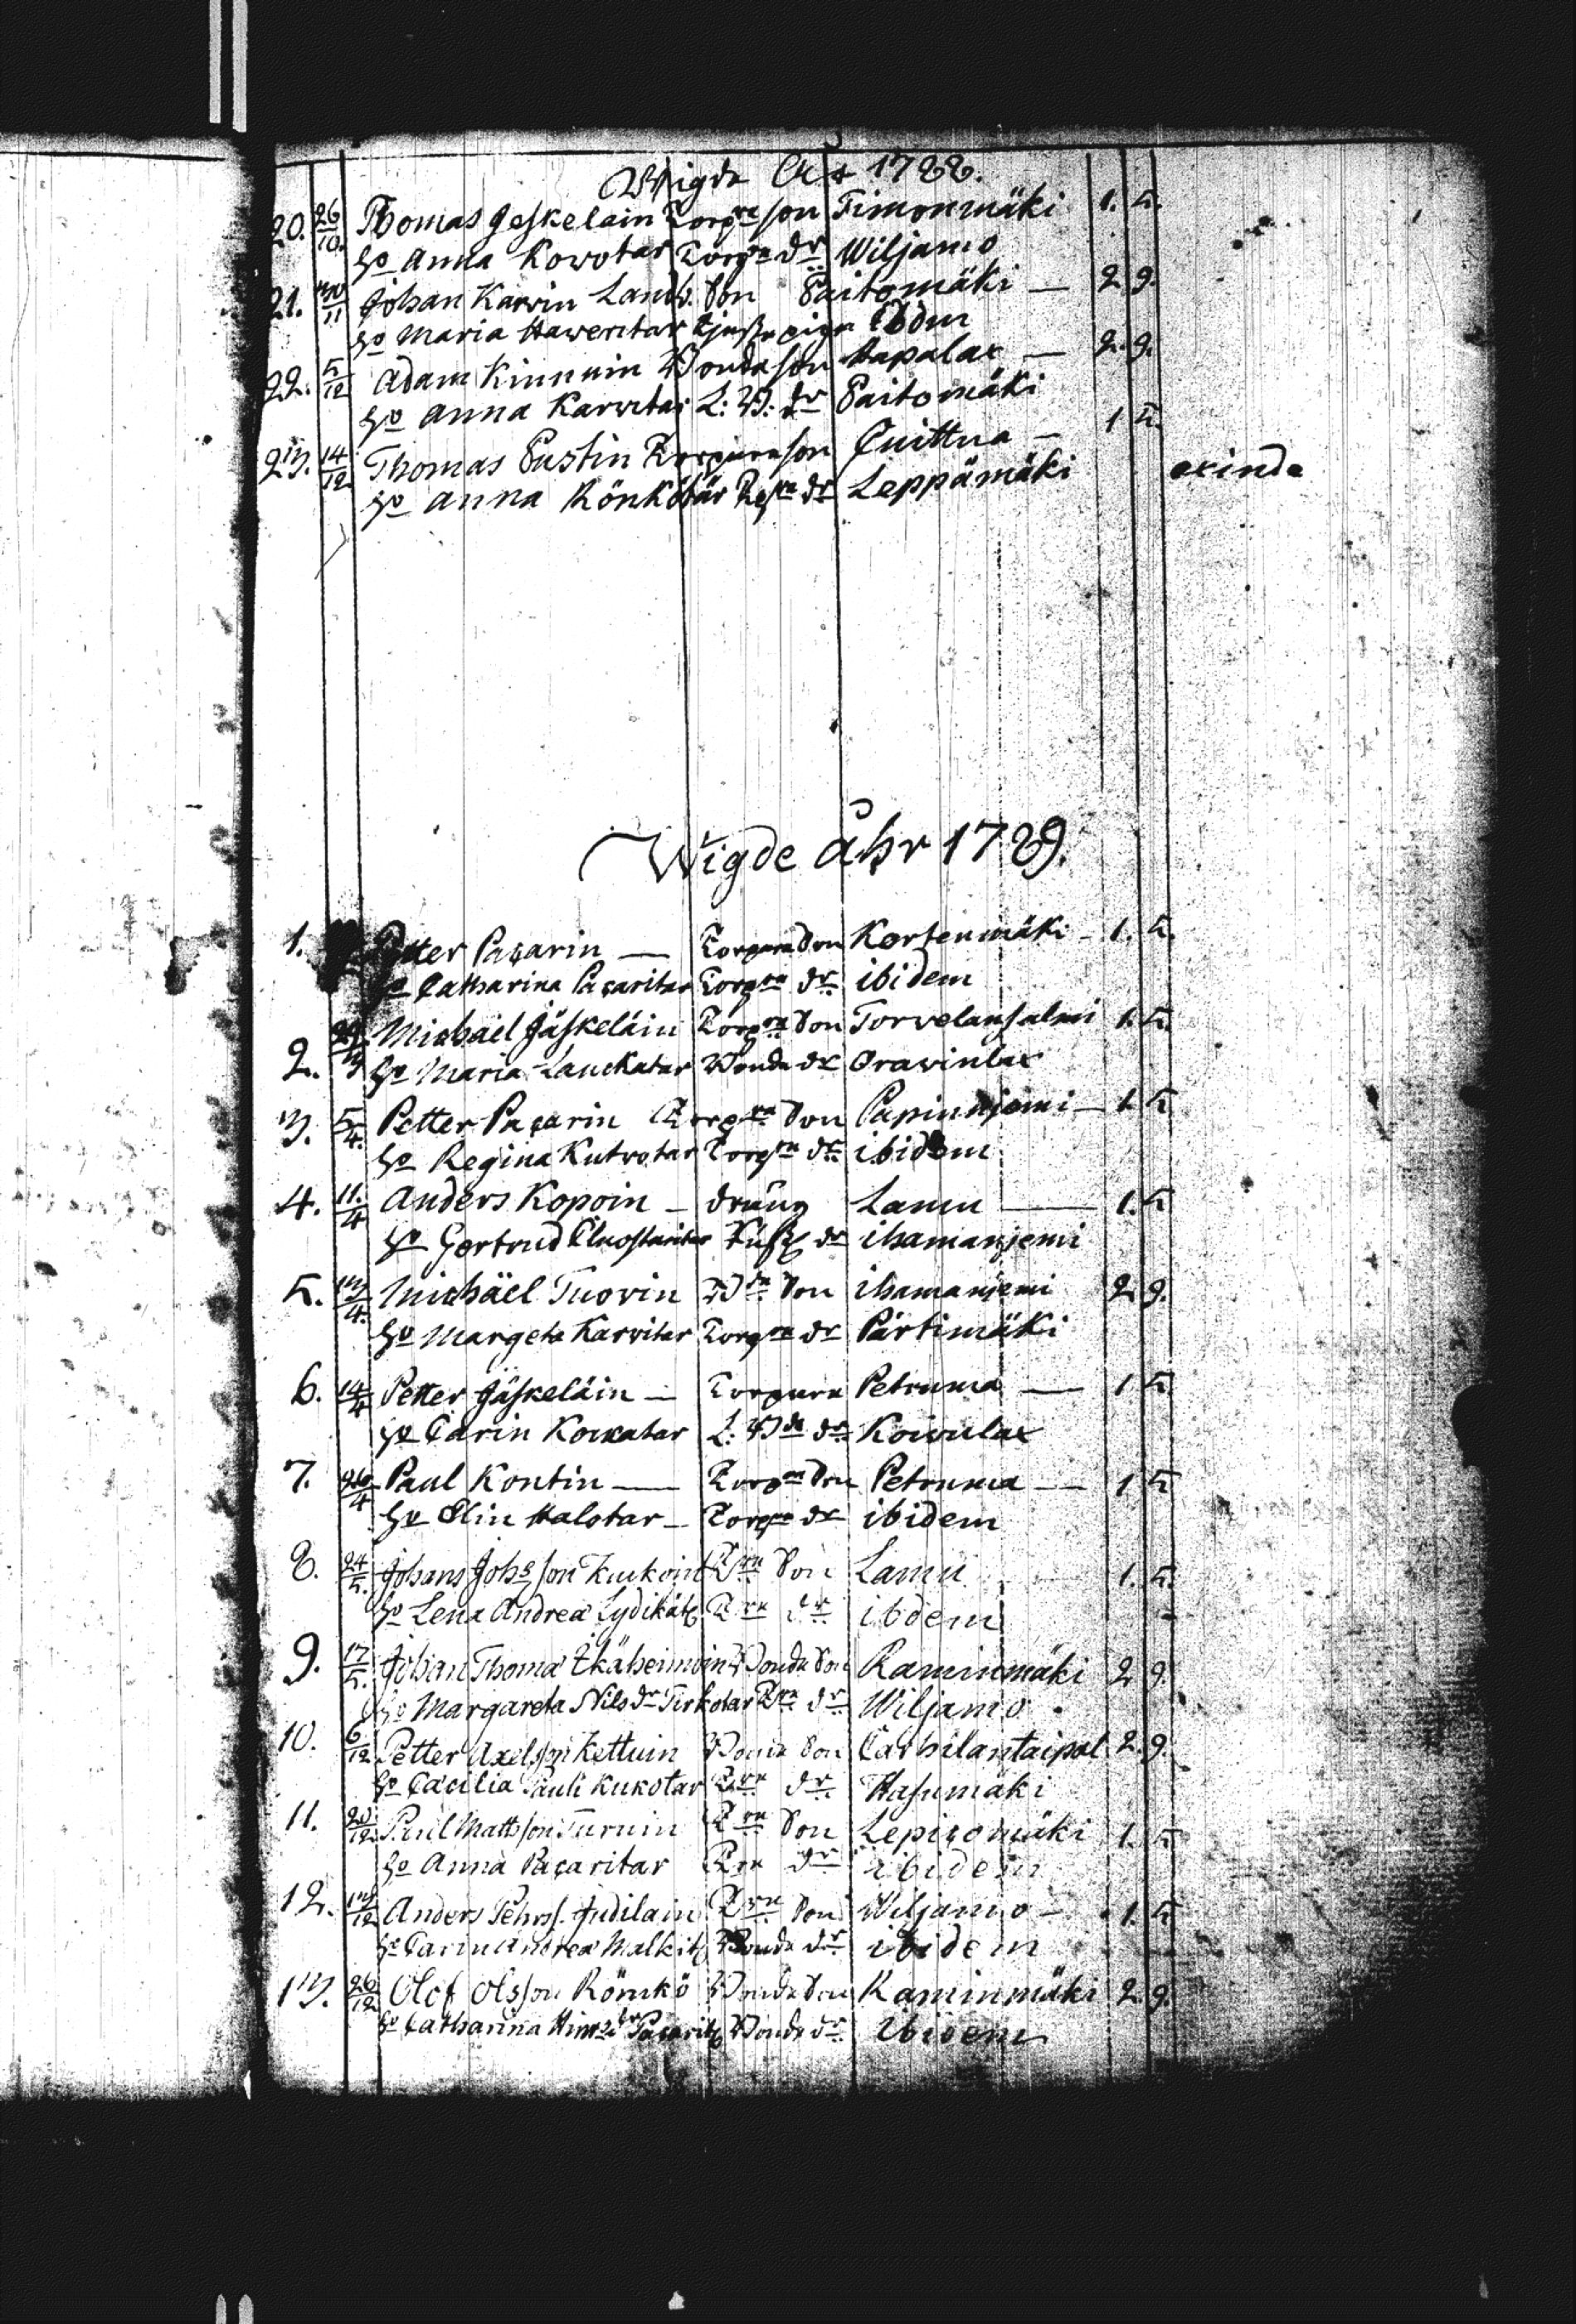 Wigde A:o 1788.
20. 26/10. Thomas Jeskelain Torp:re son Timonmäki 1. 5.
H:o Anna Kowotar Torp:re d:r Wiljamo
21. /11 Johan Karvin Landb. Son Saitomäki — 2 9.
H:o Maria Haweritar piga Ibdm
22. 5/12 Adam Kinnuin Bonde son Hapalax — 2. 9.
H:o Anna Karvitar L: B: d:r Saitomäki
23. 14/12 Thomas Pustin Torpare son Quittua — 1 5.
H:o Anna Rönkötär d:r Leppämäki
Wigde åhr 1789.
1. Petter Paҫarin — Torpare Son Kortenmäki – 1. 5.
H:o Catharina Paҫaritar Torp:re d:r ibidem
2. 29/3 Michaël Jäskeläin Torp:re Son Torvelansalmi 1. 5.
H:o Maria Laukatar Bonde d:r Oravinlax
3. 5/4. Petter Paҫarin Torp:re Son Papinniemi — 1. 5
H:o Regina Kutvotar Torp:re d:r ibidem
4. 11./4 Anders Kopoin – dräng Lamu — 1. 5
H:o Gertrud d:r ihamaniemi
5. 13/4. Michäel Tuovin B:de Son ihamaniemi 2 9.
H:o Margeta Karvitar Torp:re d:r Pärtimäki
6. 14/4 Petter Jäskeläin — Torpare Petruma — 1 5
H:o Carin Kowatar L: B:de d:r Koivulax
7. 26/4 Paul Kontin — Torp:re Son Petruma — 1 5
H:o Elin Halotar – Torp:re d:r ibidem
8. 24/5. Johans Joh:s son Kukoin T:re Son Lamu 1. 5.
H:o Lena Andreæ T:re d:r ibdem
9. 17/5. Johan Thomæ Ikäheimoin Bonde Son Raminmäki 2 9.
H:o Margareta Nils d:r Tirkotar T:re d:r Wiljamo
10. 6/12 Petter Axelsson Kettuin Bonde Son Carhilantaipal 2. 9.
H:o Cæcilia Pauli Kukotar T:re d:r Hasumäki
11. 20/12 Paul Mattsson Turuin T:re Son Lepiҫomäki 1. 5
H:o Anna Paҫaritar T:re d:r ibidem
12. 13/12 Anders Pehrs. T:re Son Wiljamo – 1. 5
H:o Carin Andreæ Bonde d:r ibidem
13. 26/12 Olof Olsson Römkö Bonde Son Raminmäki 2 9.
H:o Catharina Bonde d:r ibidem